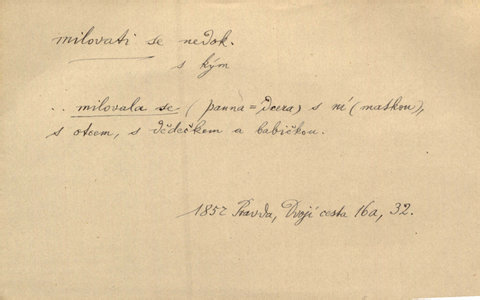 milovati se nedok.
s kým
.. milovala se (panna = dcera) s ní (matkou),
s otcem, s dědečkem a babičkou.
1852 Pravda, Dvojí cesta 16a, 32.